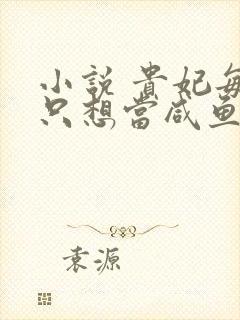 小說 貴妃每
只想當咸鱼
袁源